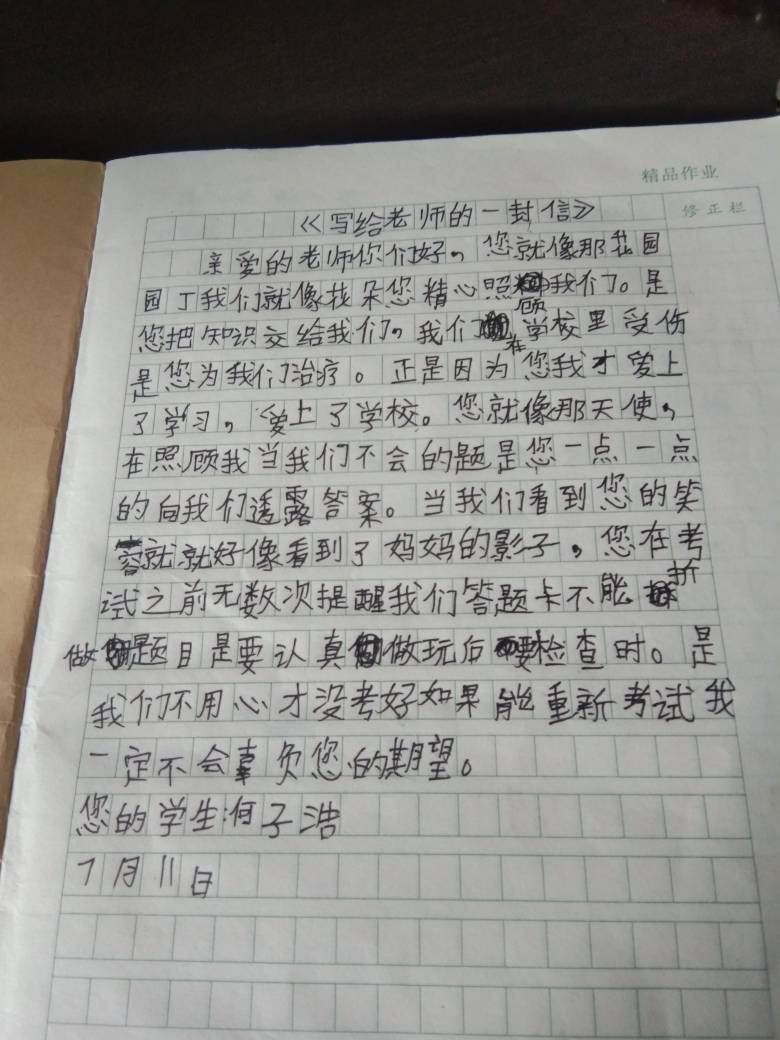 精品作业
修正栏
《写给老师的一封信》
亲爱的老师你们好，您就像那花园
园丁我们就像花朵您精心照顾我们。是
您把知识交给我们，我们在学校里受伤
是您为我们治疗。正是因为您我才爱上
了学习，爱上了学校。您就像那天使，
在照顾我当我们不会的题是您一点一点
的向我们透露答案。当我们看到您的笑
容就就好像看到了妈妈的影子，您在考
试之前无数次提醒我们答题卡不能折
做题目是要认真做玩后要检查时。是
我们不用心才没考好如果能重新考试我
一定不会辜负您的期望。
您的学生:何子浩
7月11日